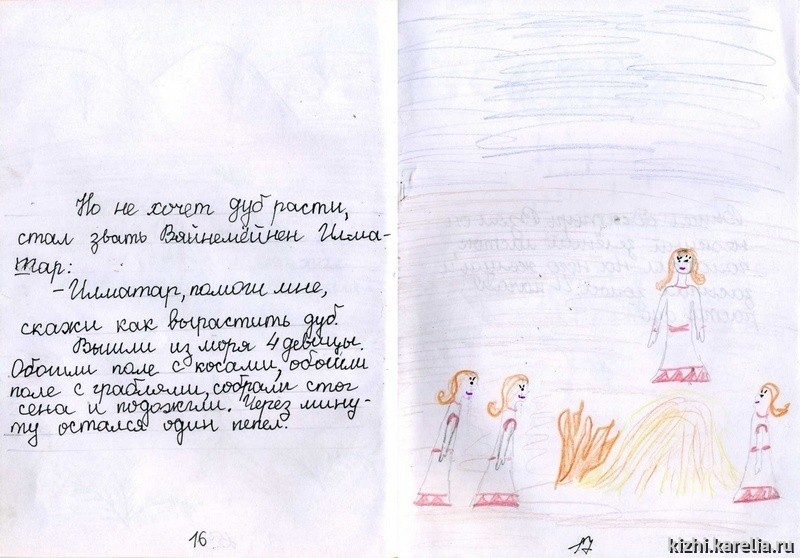 Но не хочет дуб расти,
стал звать Вяйнемёйнен Илма-
тар:
- Илматар, помоги мне,
скажи как вырастить дуб.
Вышли из моря 4 девицы.
Обошли поле с косами, обошли
поле с граблями, собрали стог
сена и подожгли. Через мину-
ту остался один пепел.
16
17
kizhi.karelia.ru